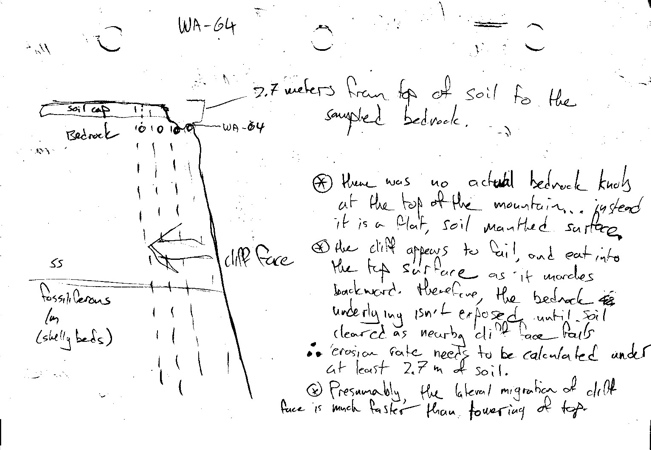 WA-64
2.7 meters from top of soil to the
sampled bedrock.
soil cap
Bedrock
WA-64
⊛ there was no actual bedrock knob
at the top of the mountain... instead
it is a flat, soil manthed surface.
⊛ the cliff appears to fail, and eat into
the top surface as it marches
backward. therefore, the bedrock
underlying isn't exposed until soil
cleared as nearby cliff face fails
∴ erosion rate needs to be calculated under
at least 2.7 m of soil.
⊛ Presumably, the lateral migration of cliff
face is much faster than lowering of top.
cliff face
ss
fossiliferous
(shelly beds)